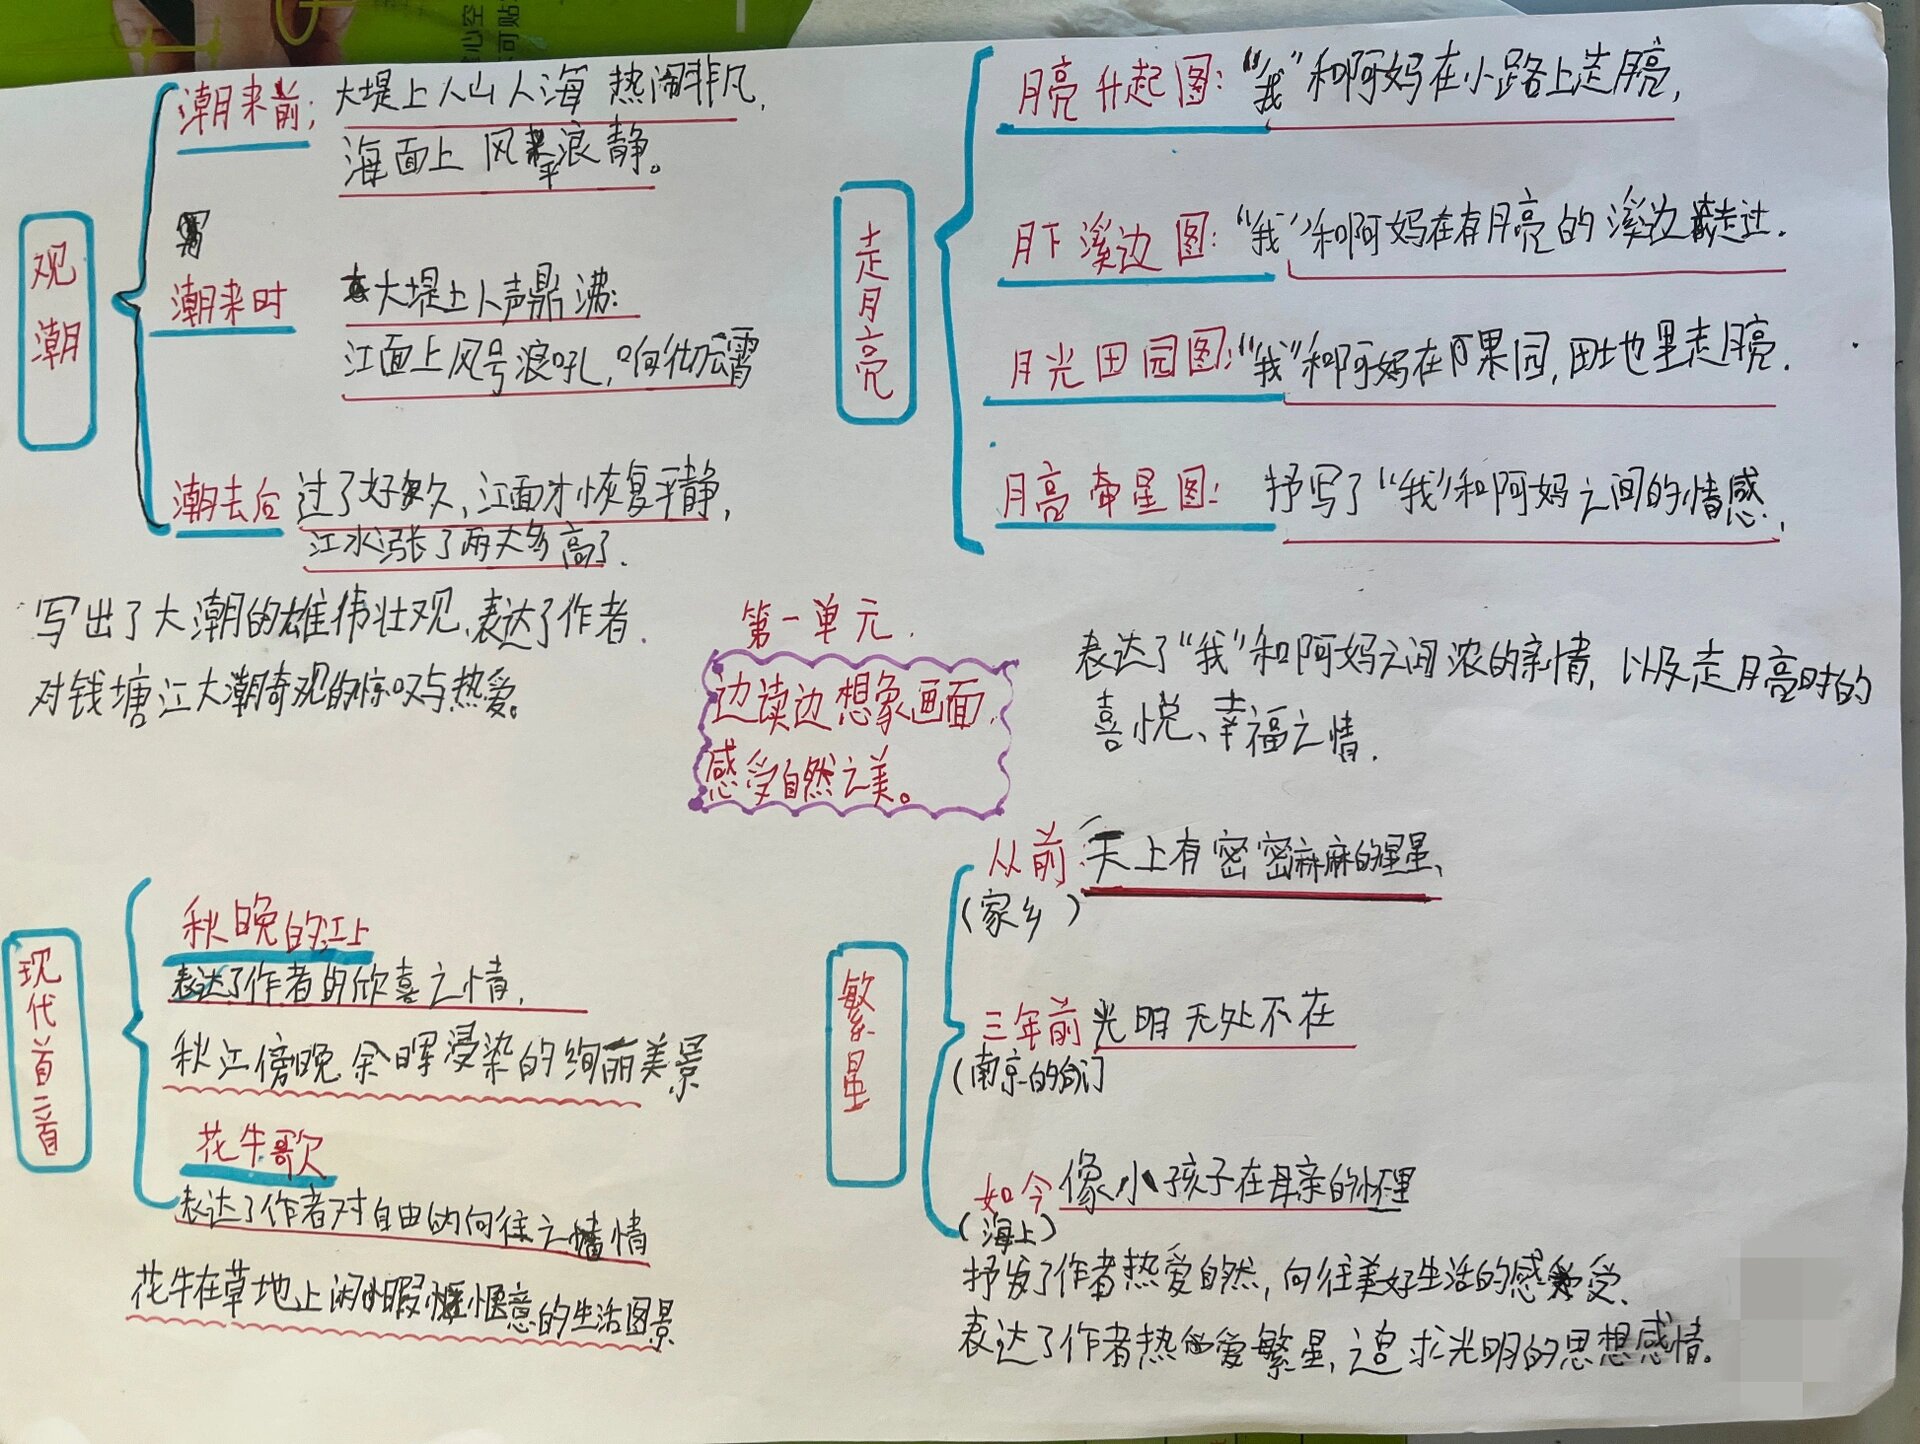 观潮
潮来前：大堤上人山人海 热闹非凡，
海面上风平浪静。
潮来时 大堤上人声鼎沸：
江面上风号浪吼，响彻云霄
潮去后 过了好久，江面才恢复平静，
江水涨了两丈多高了.
写出了大潮的雄伟壮观，表达了作者
对钱塘江大潮奇观的惊叹与热爱。
走月亮
月亮升起图：“我”和阿妈在小路上走月亮，
月下溪边图：“我”和阿妈在有月亮的溪边走过.
月光田园图：“我”和阿妈在果园，田地里走月亮.
月亮牵星图： 抒写了“我”和阿妈之间的情感.
表达了“我”和阿妈之间浓的亲情，以及走月亮时的
喜悦、幸福之情.
第一单元
边读边想象画面，
感受自然之美。
现代诗二首
秋晚的江上
表达了作者的欣喜之情，
秋江傍晚余晖浸染的绚丽美景
花牛歌
表达了作者对自由的向往之情
花牛在草地上闲暇惬意的生活图景
繁星
从前：天上有密密麻麻的星星、
（家乡）
三年前 光明无处不在
（南京的
如今 像小孩子在母亲的怀里
（海上）
抒发了作者热爱自然，向往美好生活的感受、
表达了作者热爱繁星，追求光明的思想感情。
心空
可贴